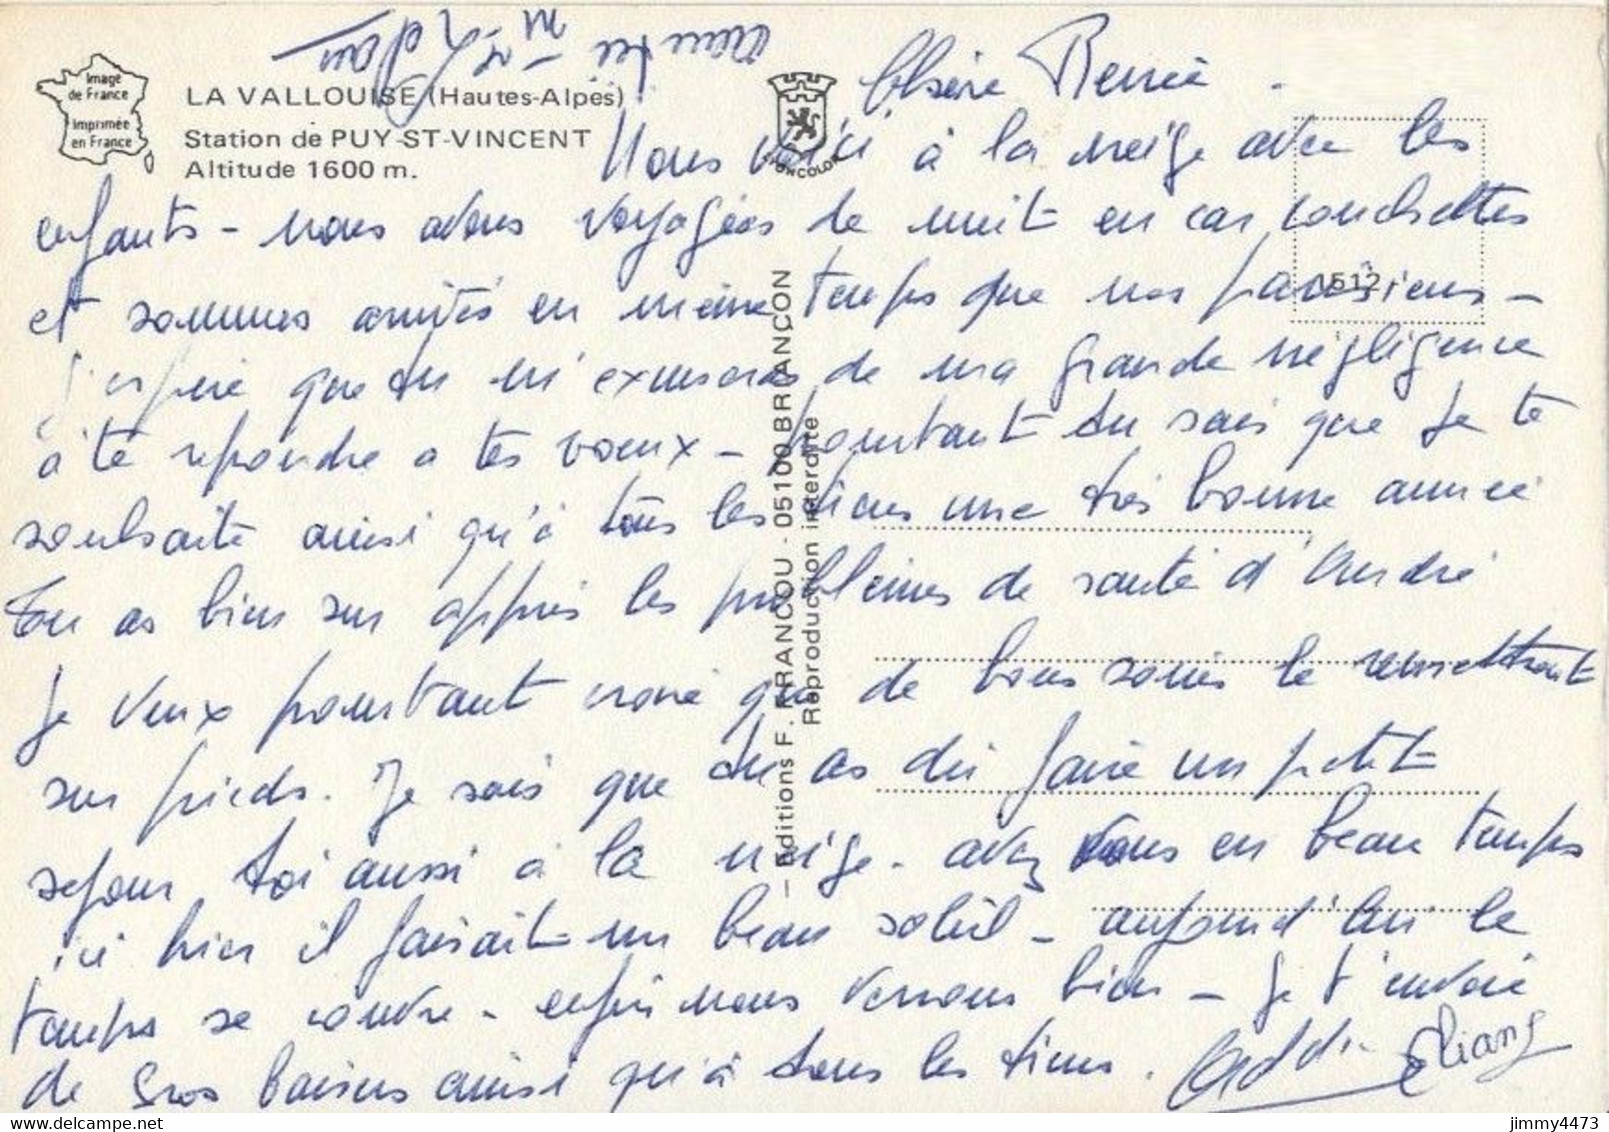 Image
de France
Imprimée
en France
LA VALLOUISE (Hautes-Alpes)
Station de PUY-ST-VINCENT
Altitude 1600 m.
1512
Editions F. FRANCOU - 05100 BRIANÇON
Reproduction interdite
Chère
Nous voici à la neige avec les
enfants - nous avons voyagés de nuit en car couchettes
et sommes arrivés en même temps que nos parisiens -
J'espère que tu m'excuseras de ma grande négligence
à te répondre a tes voeux - pourtant tu sais que je te
souhaite ainsi qu'à tous les tiens une très bonne année
Tu as bien sur appris les problèmes de santé d'André
Je veux pourtant croire que de bons soins le remettront
sur pieds. Je sais que tu as du faire un petit
sejour toi aussi à la neige - avez vous eu beau temps
ici hier il faisait un beau soleil - aujourd'hui le
temps se couvre - enfin nous verrons bien - Je t'envoie
de gros baisers ainsi qu'à tous les tiens.
jimmy4473